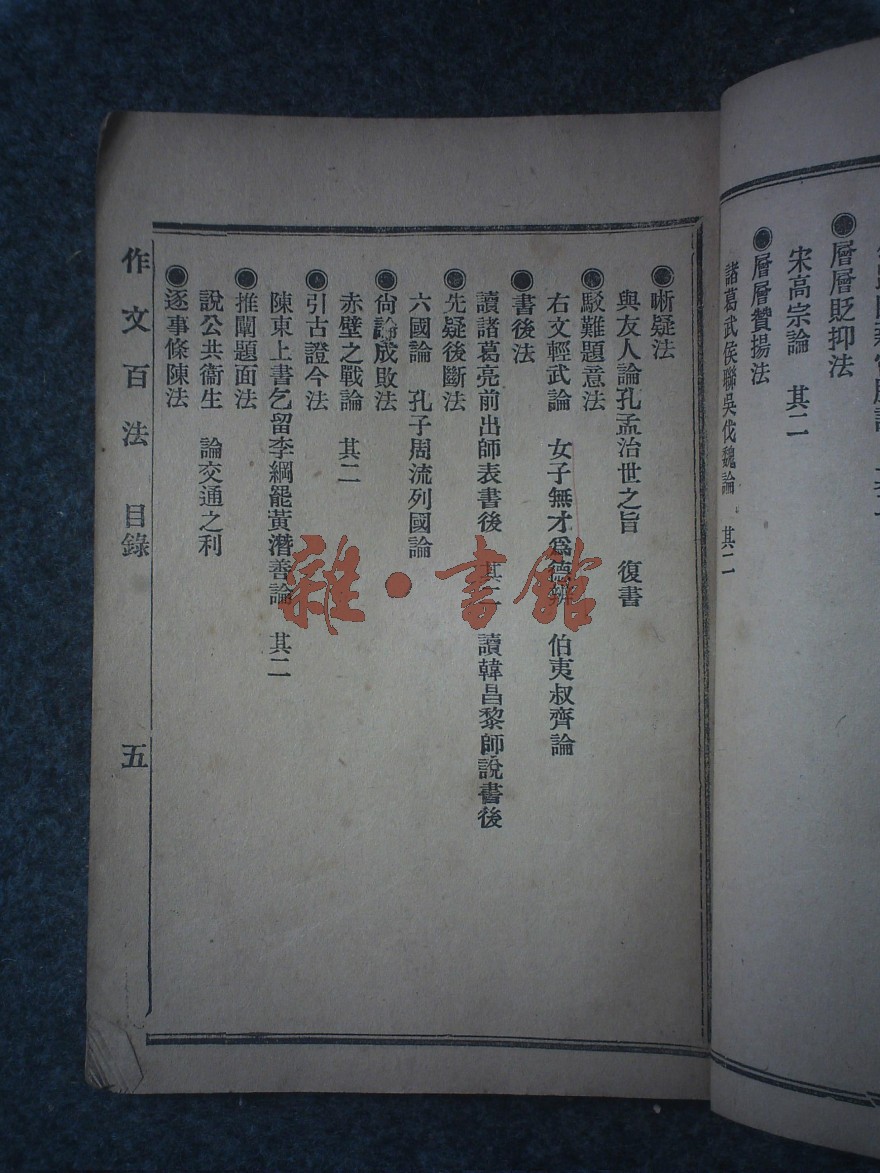 層層貶抑法
宋高宗論　其二
層層贊揚法
諸葛武侯聯吳伐魏論　其二
晰疑法
與友人論孔孟治世之旨　復書
駁難題意法
右文輕武論　女子無才爲德辨　伯夷叔齊論
書後法
讀諸葛亮前出師表書後　其二　讀韓昌黎師說書後
先疑後斷法
六國論　孔子周流列國論
尙論成敗法
赤壁之戰論　其二
引古證今法
陳東上書乞留李綱罷黃潛善論　其二
推闡題面法
說公共衞生　論交通之利
逐事條陳法
作文百法　目錄　五
雜·書館